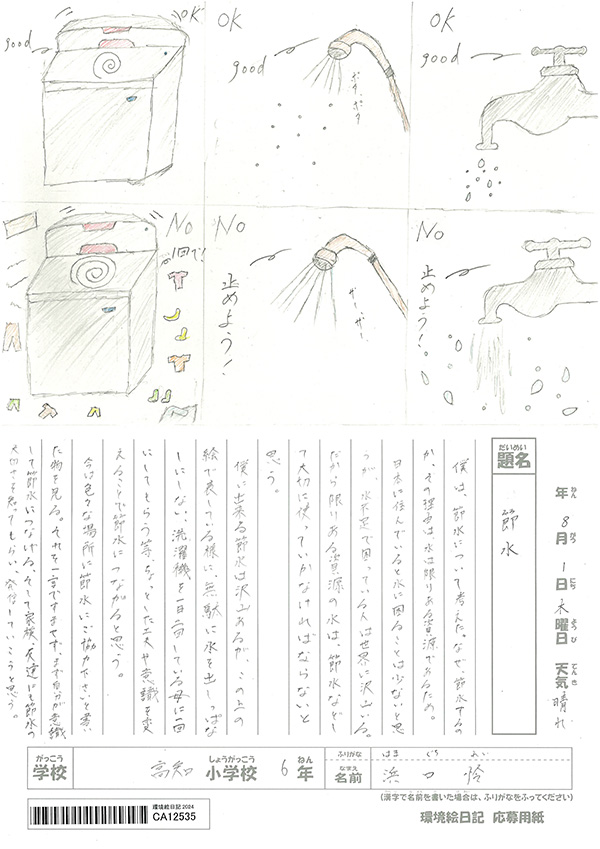 OK
good
OK
good
ポタ、ポタ
OK
good
No
1回で!
No
止めよう!
ザー、ザー
No
止めよう!。
年 8月 1日 木曜日 天気 晴れ
ねん がつ にち ようび てんき
だいめい
題名
節水
僕は、節水について考えた。なぜ、節水するの
か、その理由は、水は限りある資源であるため。
日本に住んでいると水に困ることは少ないと思
うが、水不足で困っている人は世界に沢山いる。
だから限りある資源の水は、節水などし
て大切に使っていかなければならないと
思う。
僕に出来る節水は沢山あるが、この上の
絵で表している様に、無駄に水を出しっぱな
しにしない、洗濯機を一日二回している母に一回
にしてもらう等、ちょっとした工夫や意識を変
えることで節水につながると思う。
今は色々な場所に節水にご協力下さいと書い
た物を見る。それを一言ですませず、まず自分が意識
して節水につなげる。そして家族、友達にも節水の
大切さを知ってもらい、発信していこうと思う。
がっこう
学校
高知
しょうがっこう
小学校
6
ねん
年
ふりがな
はま ぐち れい
なまえ
名前
浜口 怜
(漢字で名前を書いた場合は、ふりがなをふってください)
環境絵日記 応募用紙
環境絵日記2024
CA12535